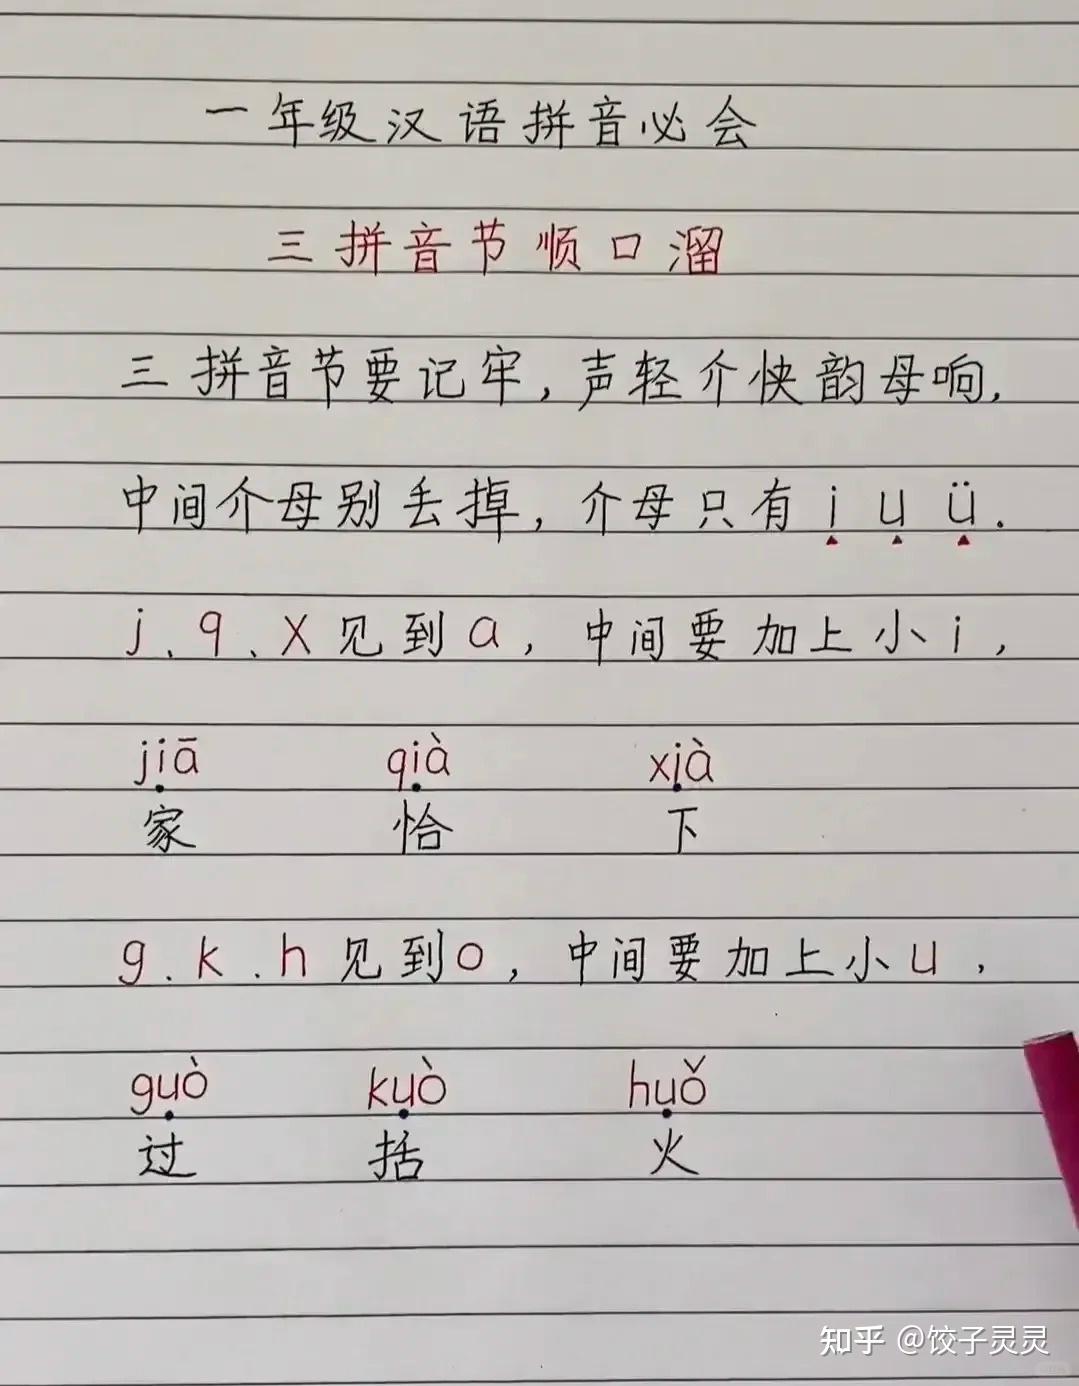 一年级汉语拼音必会
三拼音节顺口溜
三拼音节要记牢,声轻介快韵母响,
中间介母别丢掉,介母只有 i u ü.
j、q、x见到a,中间要加上小i,
jiā qià xià
家 恰 下
g.k.h见到o,中间要加上小u,
guò kuò huǒ
过 括 火
知乎 @饺子灵灵